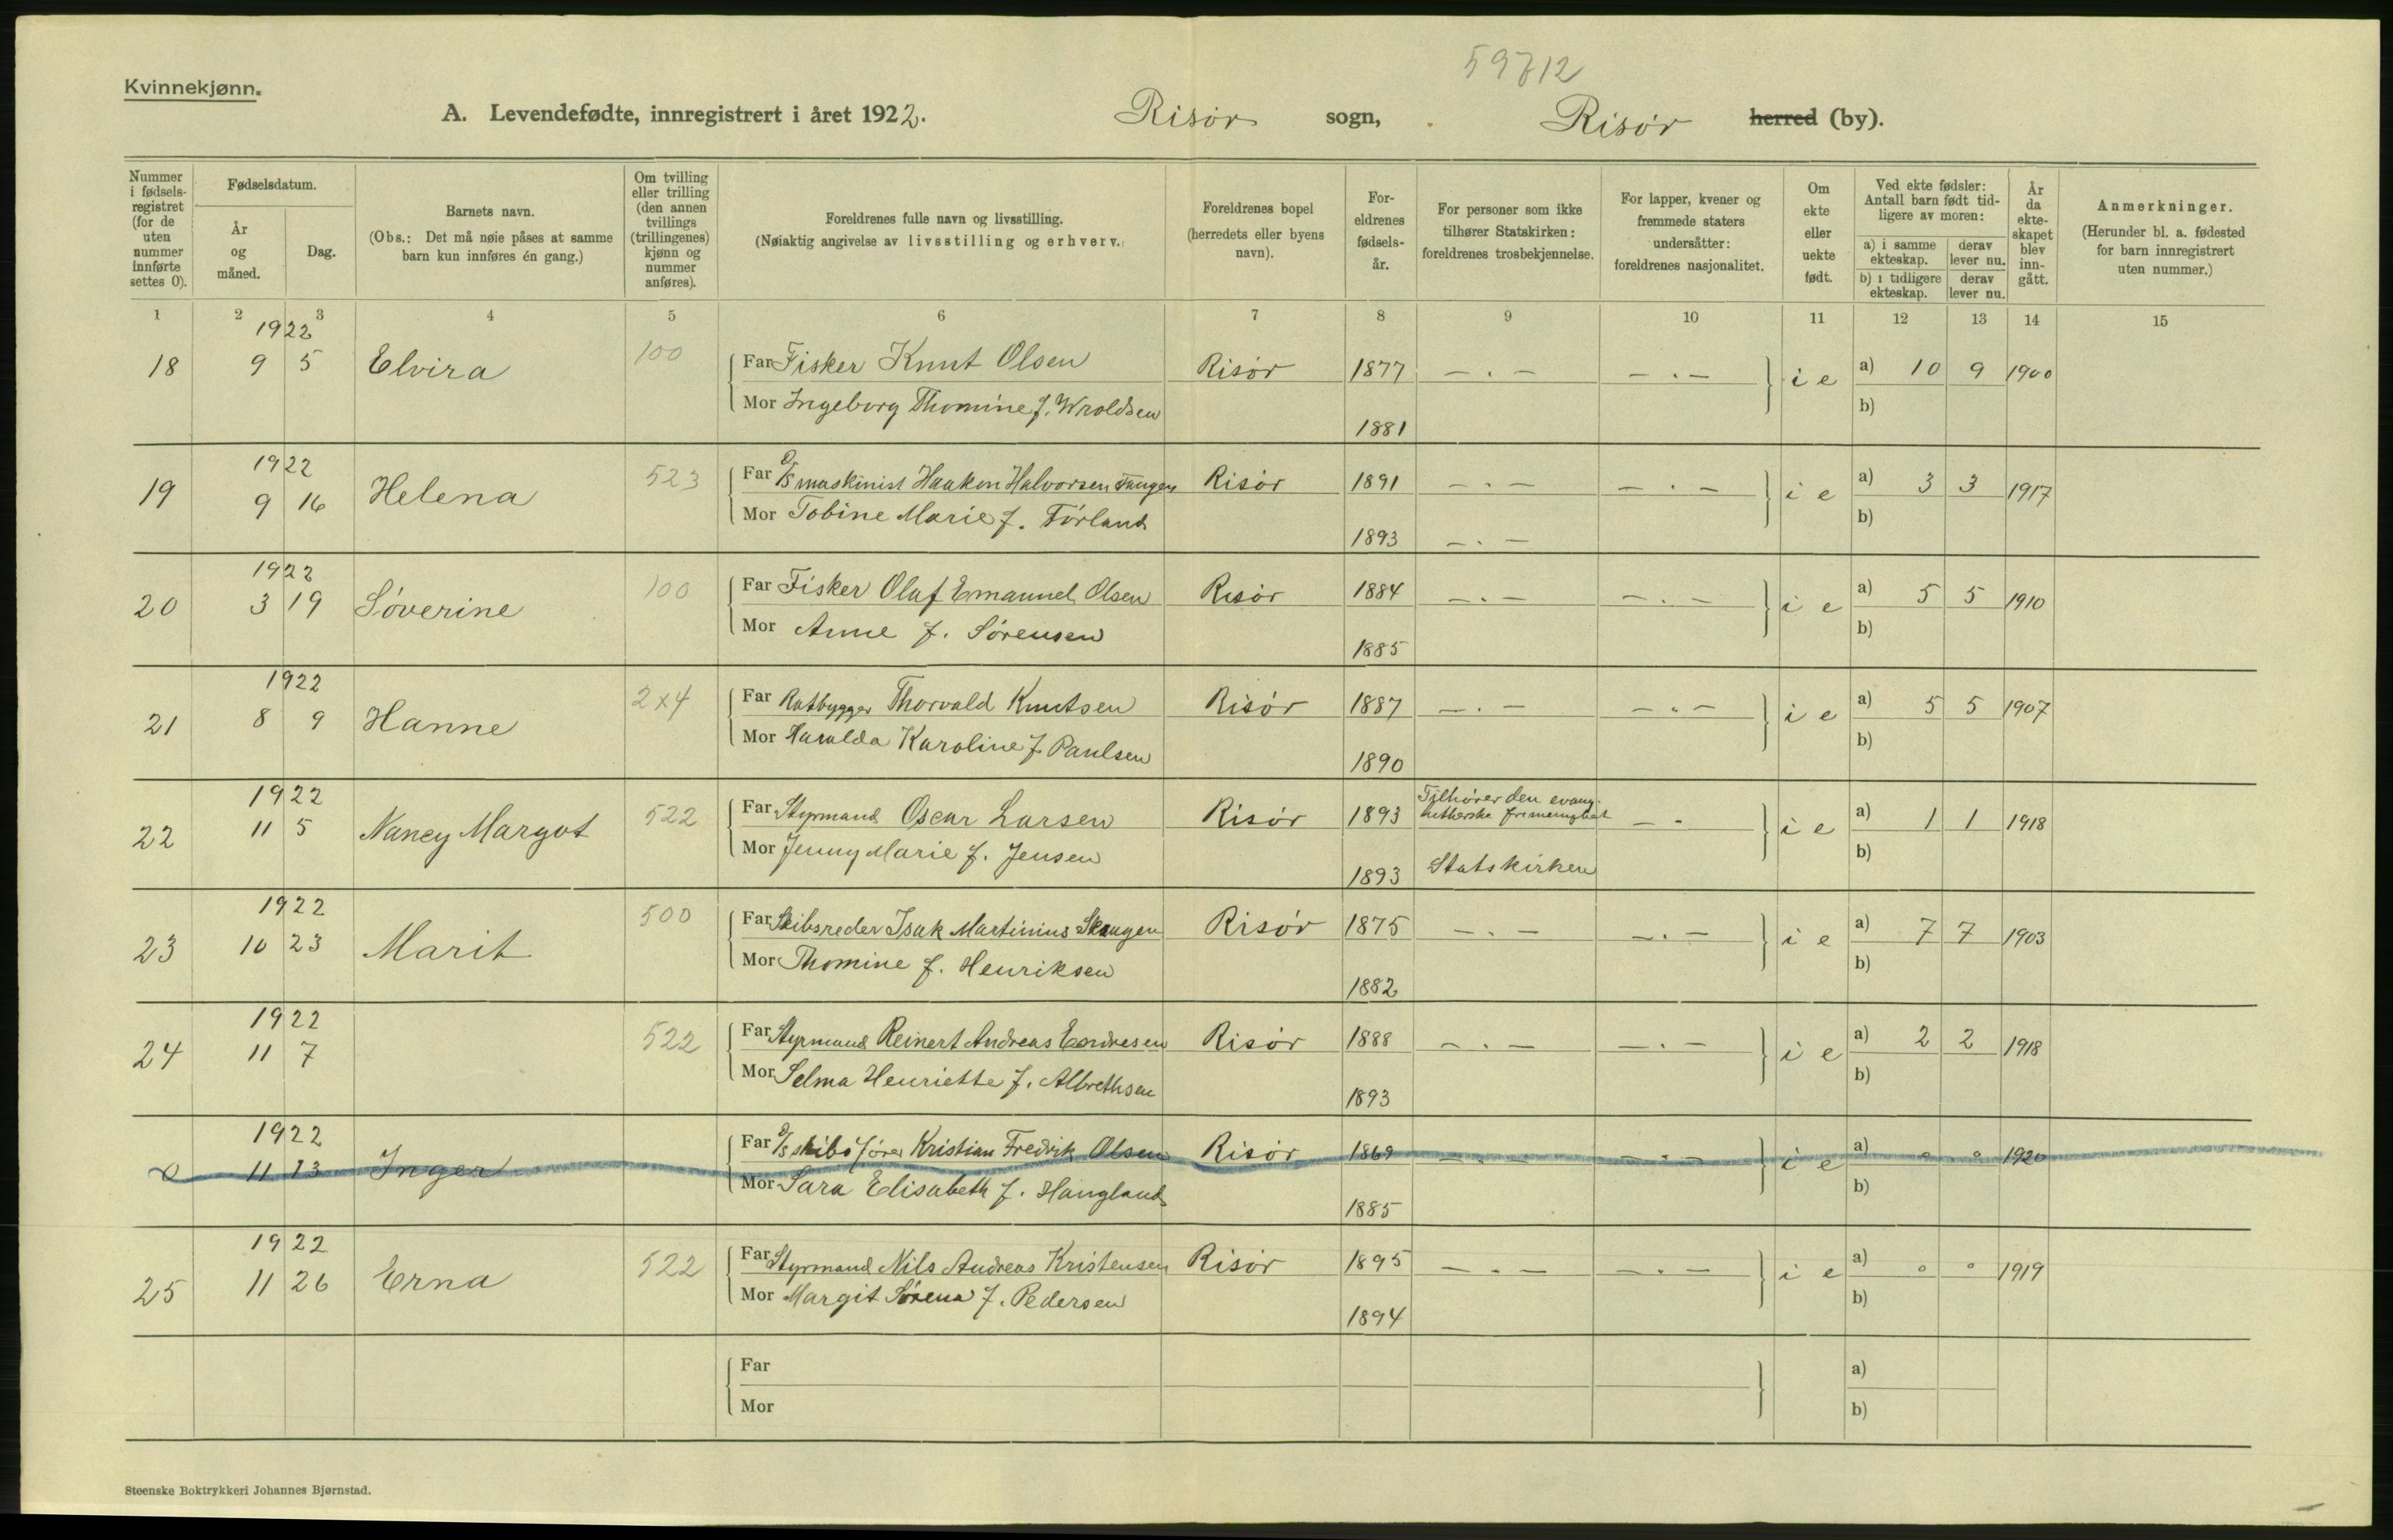 59712
Kvinnekjønn.
A. Levendefødte, innregistrert i året 1922. Risör sogn, Risör herred (by).
Nummer i fødsels-registret (for de uten nummer innførte settes 0).
Fødselsdatum.
År og måned.
Dag.
Barnets navn.
(Obs.: Det må nøie påses at samme barn kun innføres én gang.)
Om tvilling eller trilling (den annen tvillings (trillingenes) kjønn og nummer anføres).
Foreldrenes fulle navn og livsstilling.
(Nøiaktig angivelse av livsstilling og erhverv.)
Foreldrenes bopel (herredets eller byens navn).
For-eldrenes fødsels-år.
For personer som ikke tilhører Statskirken: foreldrenes trosbekjennelse.
For lapper, kvener og fremmede staters undersåtter: foreldrenes nasjonalitet.
Om ekte eller uekte født.
Ved ekte fødsler: Antall barn født tid-ligere av moren:
a) i samme ekteskap. derav lever nu.
b) i tidligere ekteskap. derav lever nu.
År da ekte-skapet blev inn-gått.
Anmerkninger.
(Herunder bl. a. fødested for barn innregistrert uten nummer.)
1 2 3 4 5 6 7 8 9 10 11 12 13 14 15
1922
18 9 5 Elvira 100 Far Fisker Knut Olsen Risör 1877 — . — — . — i e a) 10 9 1900
Mor Ingeborg Thomine f. Wroldsen 1881 b)
1922
19 9 16 Helena 523 Far D/S maskinist Haakon Halvorsen Fangen Risör 1891 — . — — . — i e a) 3 3 1917
Mor Tobine Marie f. Förland 1893 — . — b)
1922
20 3 19 Söverine 100 Far Fisker Oluf Emanuel Olsen Risör 1884 — . — — . — i e a) 5 5 1910
Mor Anne f. Sörensen 1885 b)
1922
21 8 9 Hanne 2x4 Far Ratbygger Thorvald Knutsen Risör 1887 — . — — " — i e a) 5 5 1907
Mor Haralda Karoline f. Paulsen 1890 b)
1922
22 11 5 Nancy Margot 522 Far Styrmand Oscar Larsen Risör 1893 Tilhörer den evang. lutherske frimenighet — - i e a) 1 1 1918
Mor Jenny Marie f. Jensen 1893 Statskirken b)
1922
23 10 23 Marit 500 Far Skibsreder Isak Martinius Skaugen Risör 1875 — . — — . — i e a) 7 7 1903
Mor Thomine f. Henriksen 1882 b)
1922
24 11 7 522 Far Styrmand Reinert Andreas Endresen Risör 1888 — . — — . — i e a) 2 2 1918
Mor Selma Henriette f. Albrethsen 1893 b)
1922
0 11 13 Inger Far D/S skibsförer Kristian Fredrik Olsen Risör 1869 — . — — . — i e a) 0 0 1920
Mor Sara Elisabeth f. Haugland 1885 b)
1922
25 11 26 Erna 522 Far Styrmand Nils Andreas Kristensen Risör 1895 — . — — . — i e a) 0 0 1919
Mor Margit Sörena f. Pedersen 1894 b)
Far a)
Mor b)
Steenske Boktrykkeri Johannes Bjørnstad.